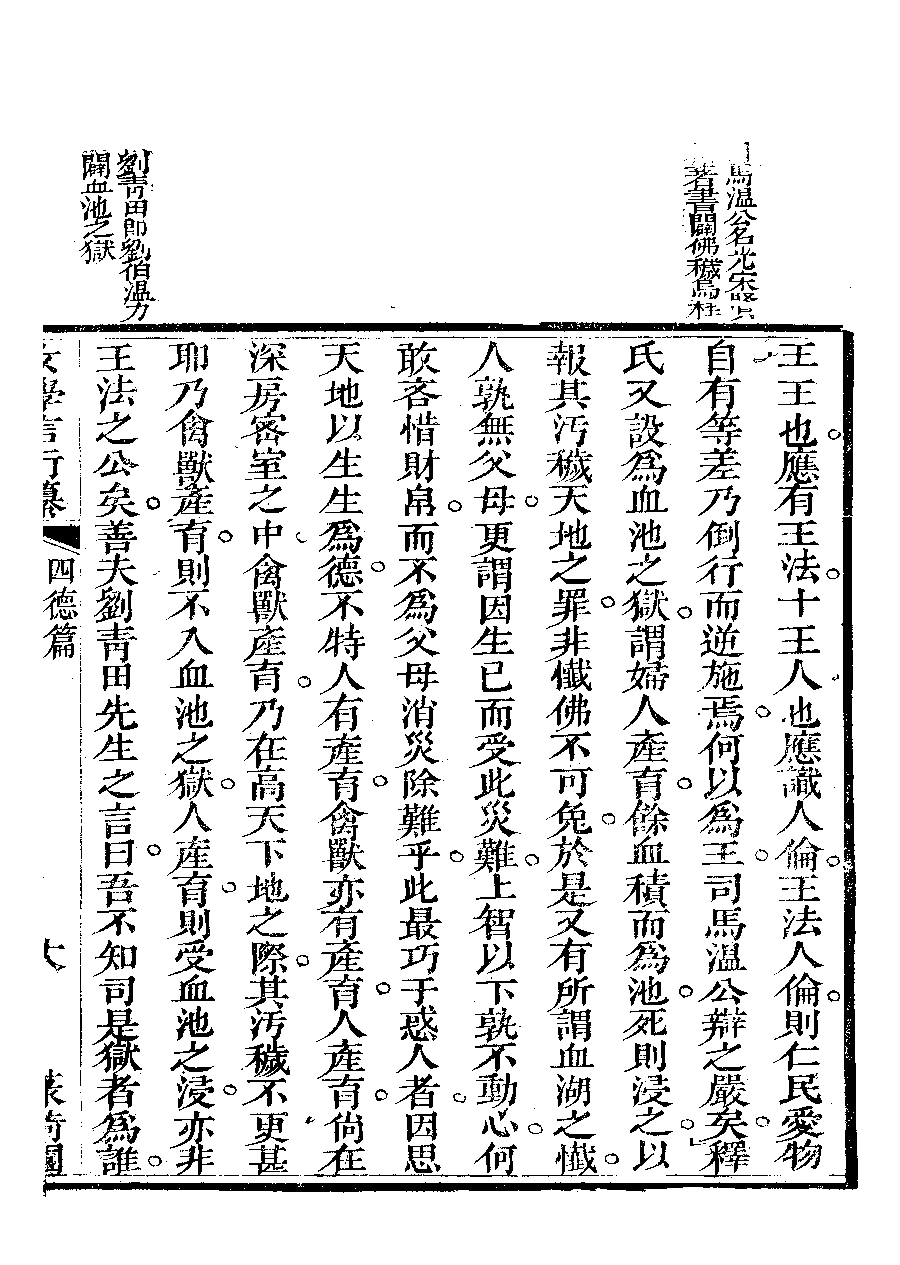 馬温公名光宋
著書闢佛穢爲
王王也應有王法十王人也應識人倫王法人倫則仁民愛物
自有等差乃倒行而逆施焉何以爲王司馬温公辯之嚴矣釋
氏又設爲血池之獄謂婦人產育餘血積而爲池死則浸之以
報其汚穢天地之罪非懺佛不可免於是又有所謂血湖之懺
人孰無父母更謂因生已而受此災難上智以下孰不動心何
敢吝惜財帛而不爲父母消災除難乎此最巧于惑人者因思
天地以生生爲德不特人有產育禽獸亦有產育人產育尙在
深房密室之中禽獸產育乃在高天下地之際其汚穢不更甚
耶乃禽獸產育則不入血池之獄人產育則受血池之浸亦非
王法之公矣善夫劉靑田先生之言曰吾不知司是獄者爲誰
劉靑田即劉伯温力
闢血池之獄
女學言行纂 四德篇